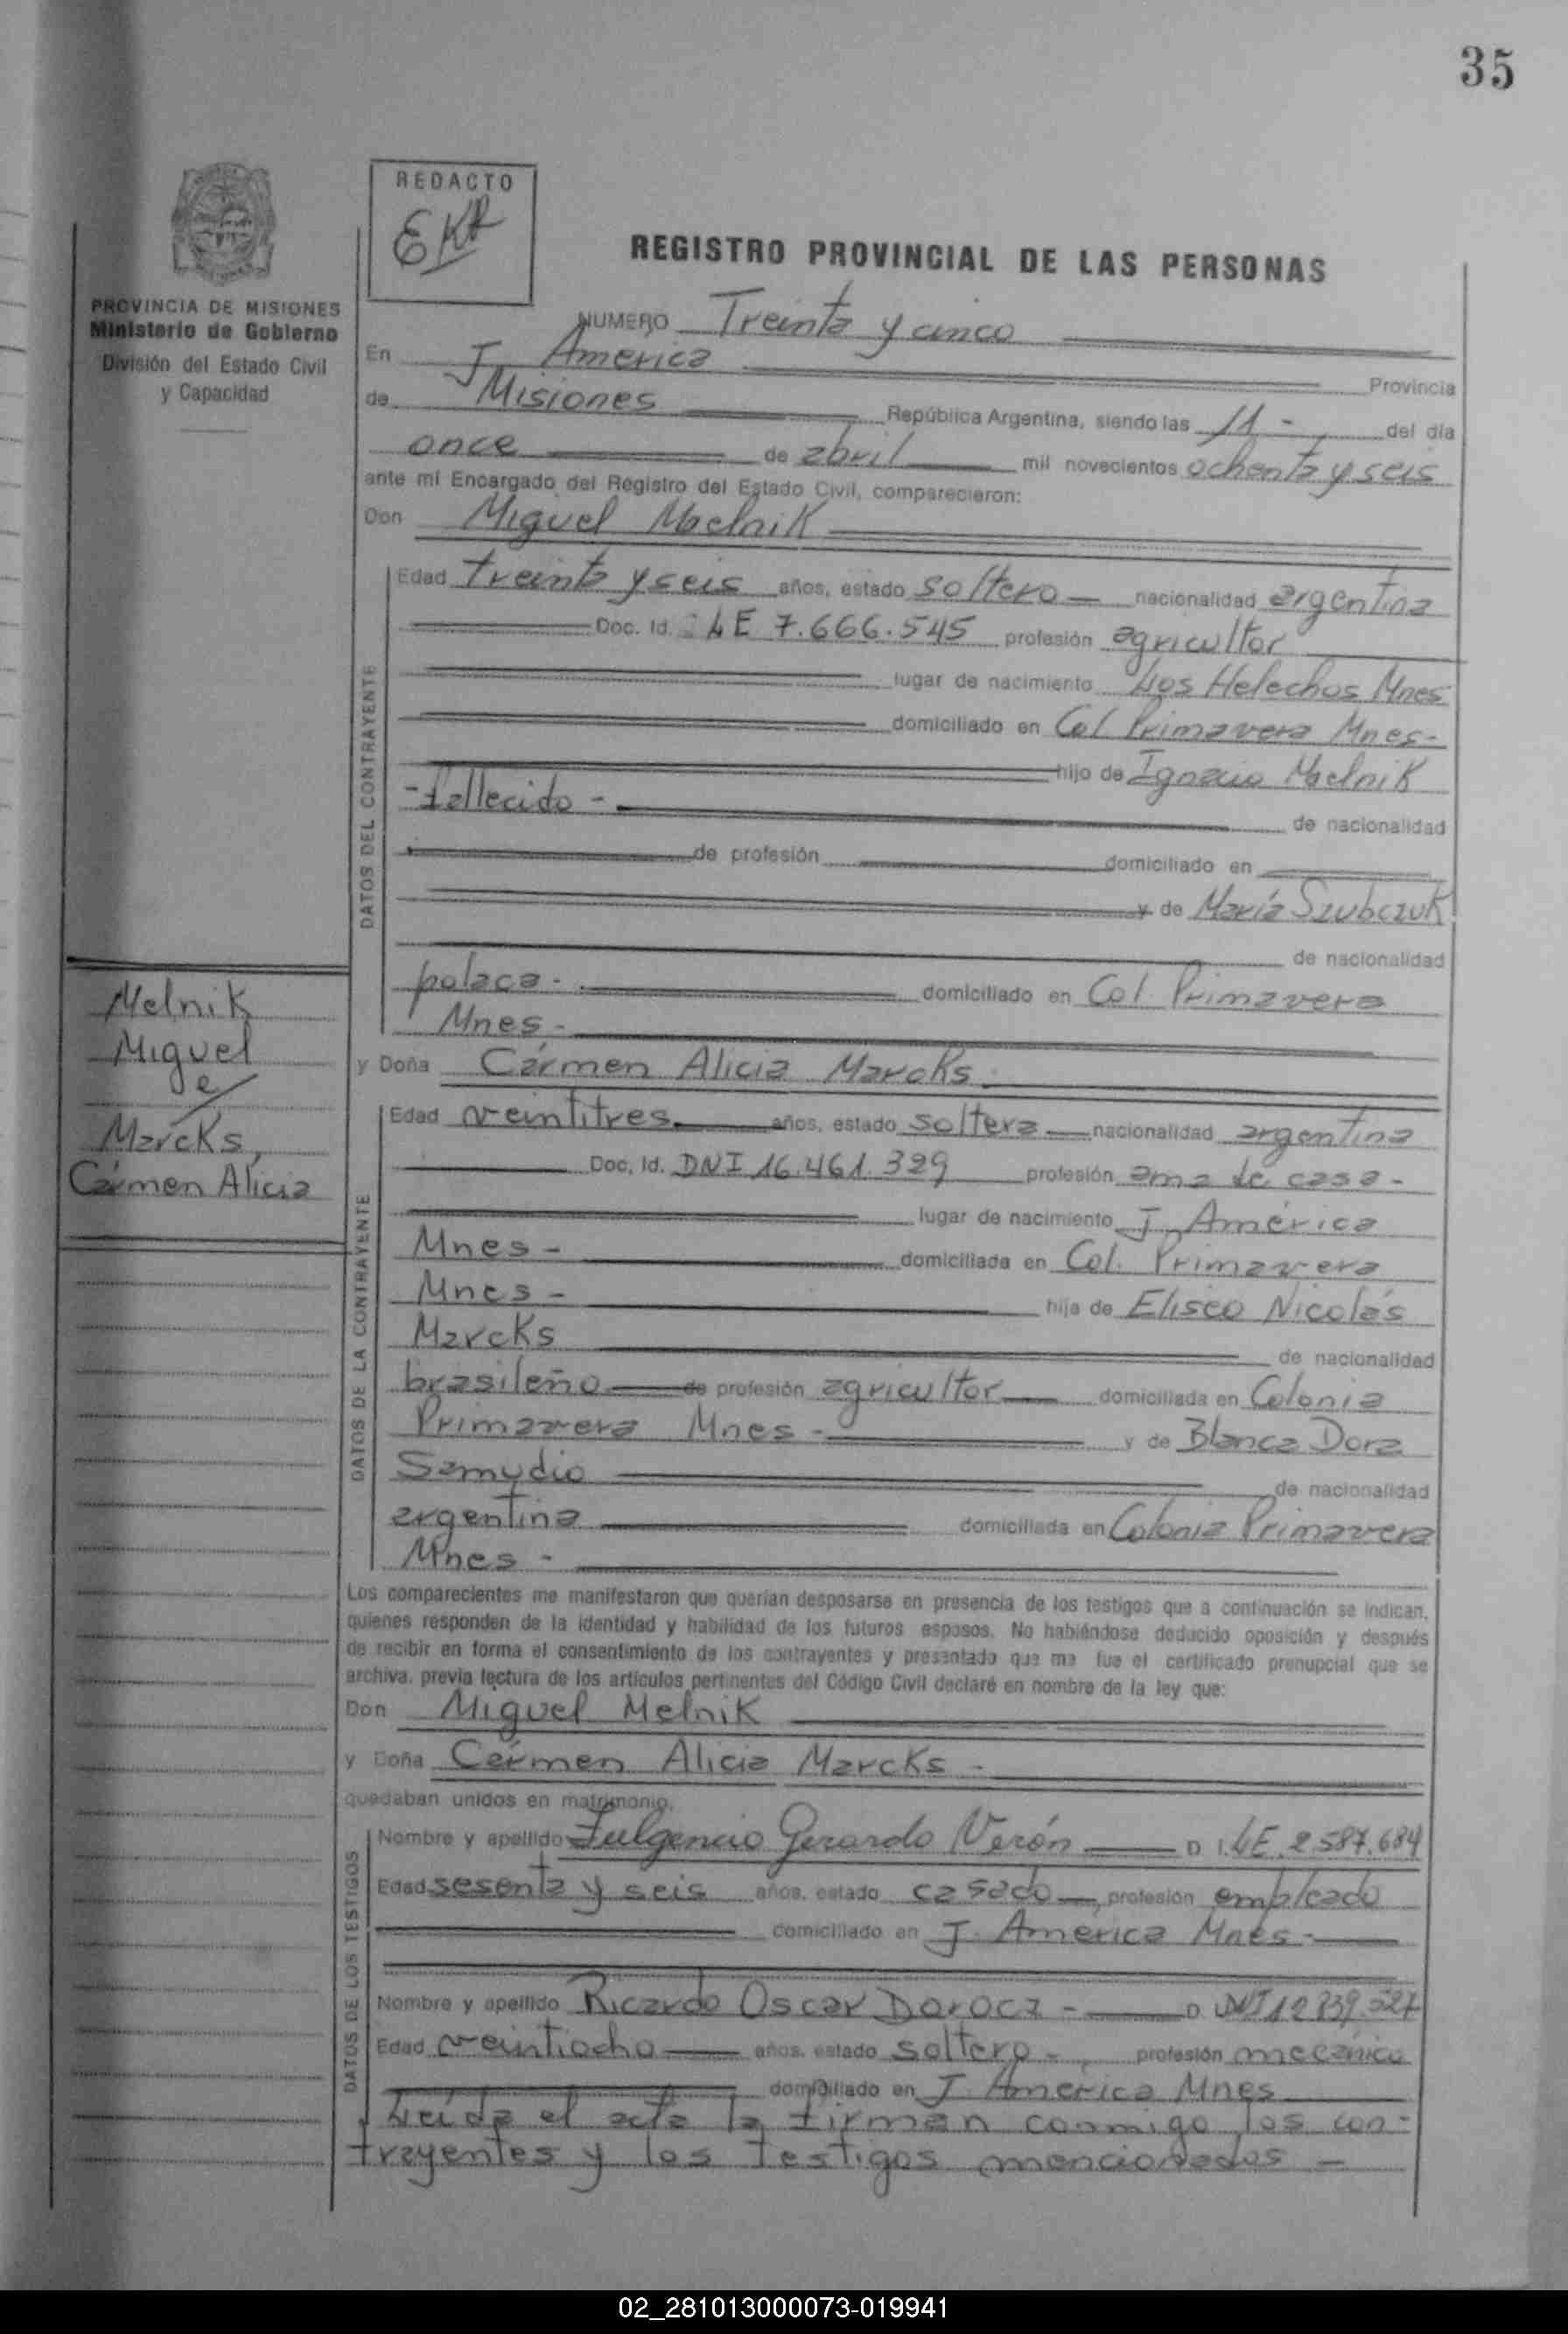 35
REDACTO
EKR
REGISTRO PROVINCIAL DE LAS PERSONAS
PROVINCIA DE MISIONES
Ministerio de Gobierno
División del Estado Civil
y Capacidad
NUMERO Treinta y cinco
En J. America Provincia
de Misiones República Argentina, siendo las 11 - del día
once de abril mil novecientos ochenta y seis
ante mí Encargado del Registro del Estado Civil, comparecieron:
Don Miguel Melnik
DATOS DEL CONTRAYENTE
Edad treinta y seis años, estado soltero nacionalidad argentina
Doc. Id. LE 7.666.545 profesión agricultor
lugar de nacimiento Los Helechos Mnes
domiciliado en Col. Primavera Mnes-
hijo de Ignacio Melnik
-fallecido- de nacionalidad
de profesión domiciliado en
y de María Szubczuk
de nacionalidad
polaca - domiciliado en Col. Primavera
Mnes -
Melnik
Miguel
e/
Marcks,
Cármen Alicia
y Doña Cármen Alicia Marcks
DATOS DE LA CONTRAYENTE
Edad veintitres años, estado soltera nacionalidad argentina
Doc. Id. DNI 16.461.329 profesión ama de casa -
lugar de nacimiento J. América
Mnes - domiciliada en Col. Primavera
Mnes - hija de Eliseo Nicolás
Marcks de nacionalidad
brasileño de profesión agricultor domiciliada en Colonia
Primavera Mnes - y de Blanca Dora
Samudio de nacionalidad
argentina domiciliada en Colonia Primavera
Mnes -
Los comparecientes me manifestaron que querían desposarse en presencia de los testigos que a continuación se indican,
quienes responden de la identidad y habilidad de los futuros esposos. No habiéndose deducido oposición y después
de recibir en forma el consentimiento de los contrayentes y presentado que me fue el certificado prenupcial que se
archiva, previa lectura de los artículos pertinentes del Código Civil declaré en nombre de la ley que:
Don Miguel Melnik
y Doña Cármen Alicia Marcks -
quedaban unidos en matrimonio.
DATOS DE LOS TESTIGOS
Nombre y apellido Fulgencio Gerardo Verón D. I. LE 2.587.684
Edad sesenta y seis años, estado casado profesión empleado
domiciliado en J. America Mnes -
Nombre y apellido Ricardo Oscar Daroca - D. I. DNI 12.839.527
Edad veintiocho años, estado soltero - profesión mecánico
domiciliado en J. América Mnes
Leída el acta la firman conmigo los con-
trayentes y los testigos mencionados -
02_281013000073-019941